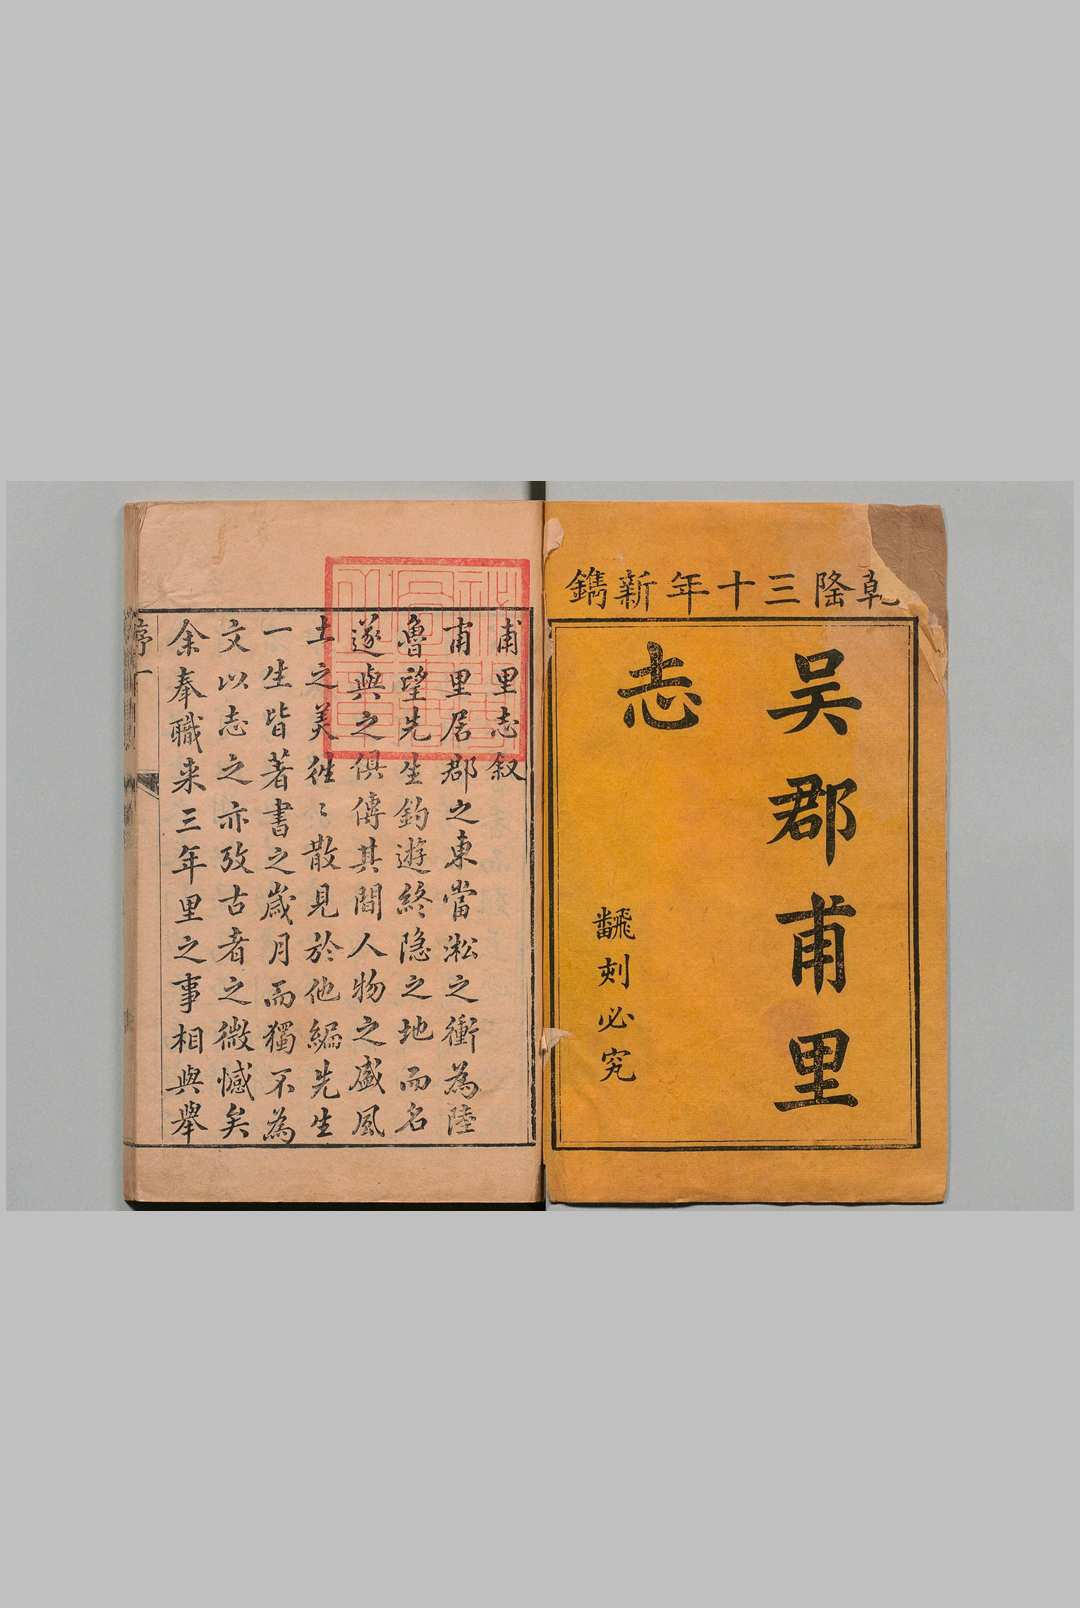 乾隆三十年新鐫
吳郡甫里
志
飜刻必究
甫里志叙
甫里居郡之東當淞之衝為陸
魯望先生釣遊終隐之地而名
遂與之俱傳其間人物之盛風
土之美徃〻散見於他編先生
一生皆著書之歲月而獨不為
文以志之亦攷古者之微憾矣
余奉職来三年里之事相與舉
序一